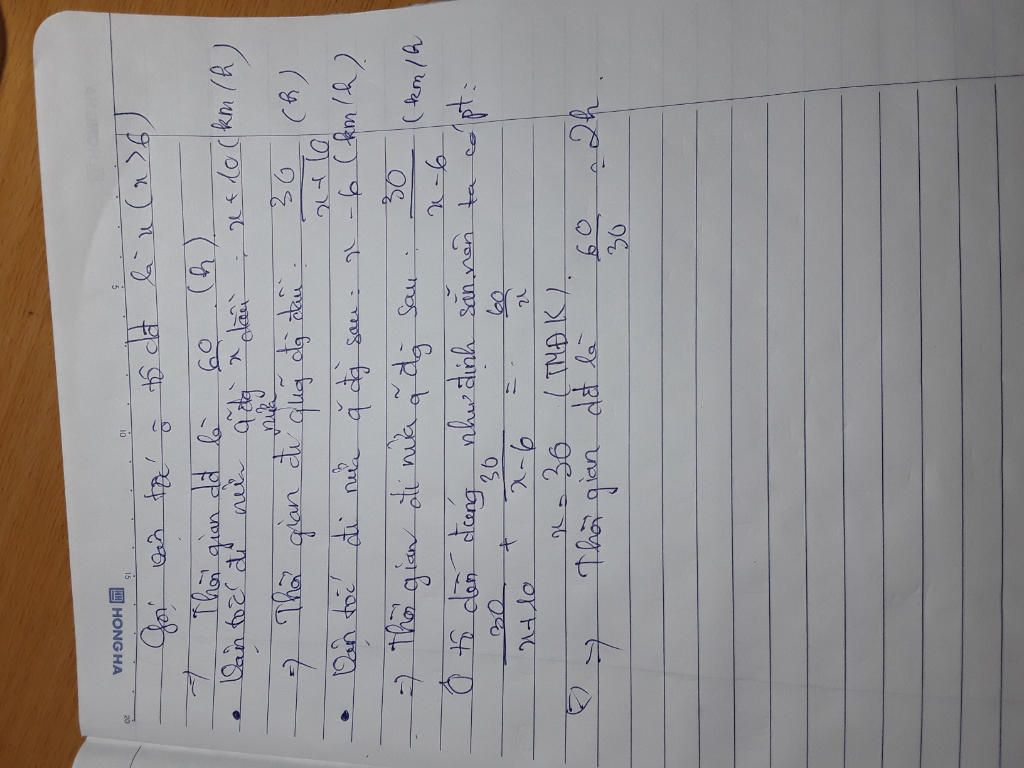 HONG HA
Gọi vận tốc ô tô dđ là x (x > 6)
=> Thời gian dđ là 60/x (h)
• Vận tốc đi nửa q̃ đg̀ đầu : x + 10 (km/h)
=> Thời gian đi nửa quãng đg̀ đầu : 30/(x + 10) (h)
• Vận tốc đi nửa q̃ đg̀ sau : x - 6 (km/h).
=> Thời gian đi nửa q̃ đg̀ sau : 30/(x - 6) (km/h
Ô tô đến đúng như định sẵn nên ta có pt :
30/(x + 10) + 30/(x - 6) = 60/x
x = 30 (TMĐK).
=> Thời gian dđ là 60/30 = 2h.